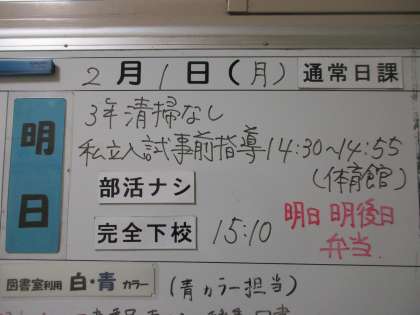 2月1日(月) 通常日課
明日
3年清掃なし
私立入試事前指導14:30~14:55
(体育館)
部活ナシ
完全下校 15:10
明日 明後日
弁当
図書室利用 白・青 カラー (青カラー担当)